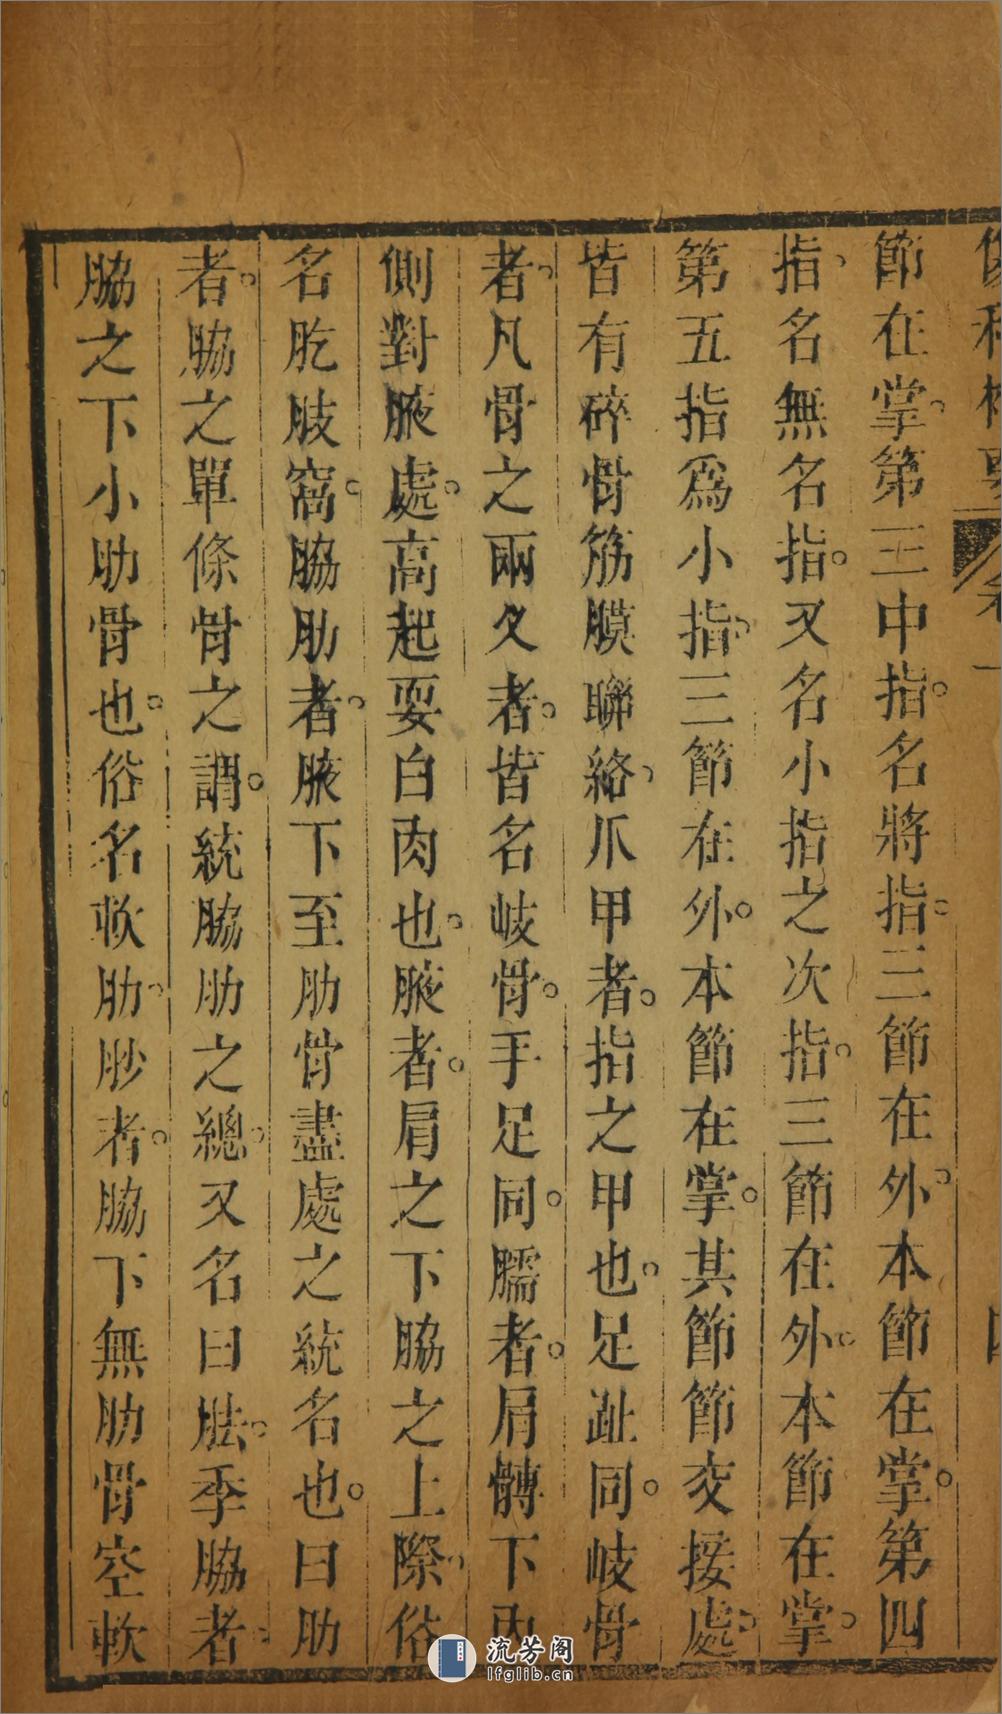 節在掌。第三中指。名將指。三節在外、本節在掌。第四
指、名無名指。又名小指之次指、三節在外、本節在掌。
第五指爲小指、三節在外。本節在掌。其節節交接處、
皆有碎骨筋膜聯絡、爪甲者。指之甲也、足趾同。岐骨
者、凡骨之兩乂者。皆名岐骨。手足同。臑者。肩髆下內
側對腋處。高起耎白肉也、腋者。肩之下脇之上際、俗
名肐肢窩。脇肋者。腋下至肋骨盡處之統名也。曰肋
者。脇之單條骨之謂。統脇肋之總。又名曰胠、季脇者。
脇之下小肋骨也。俗名軟肋、䏚者。脇下無肋骨空軟
卷一
流芳阁
lfglib.cn